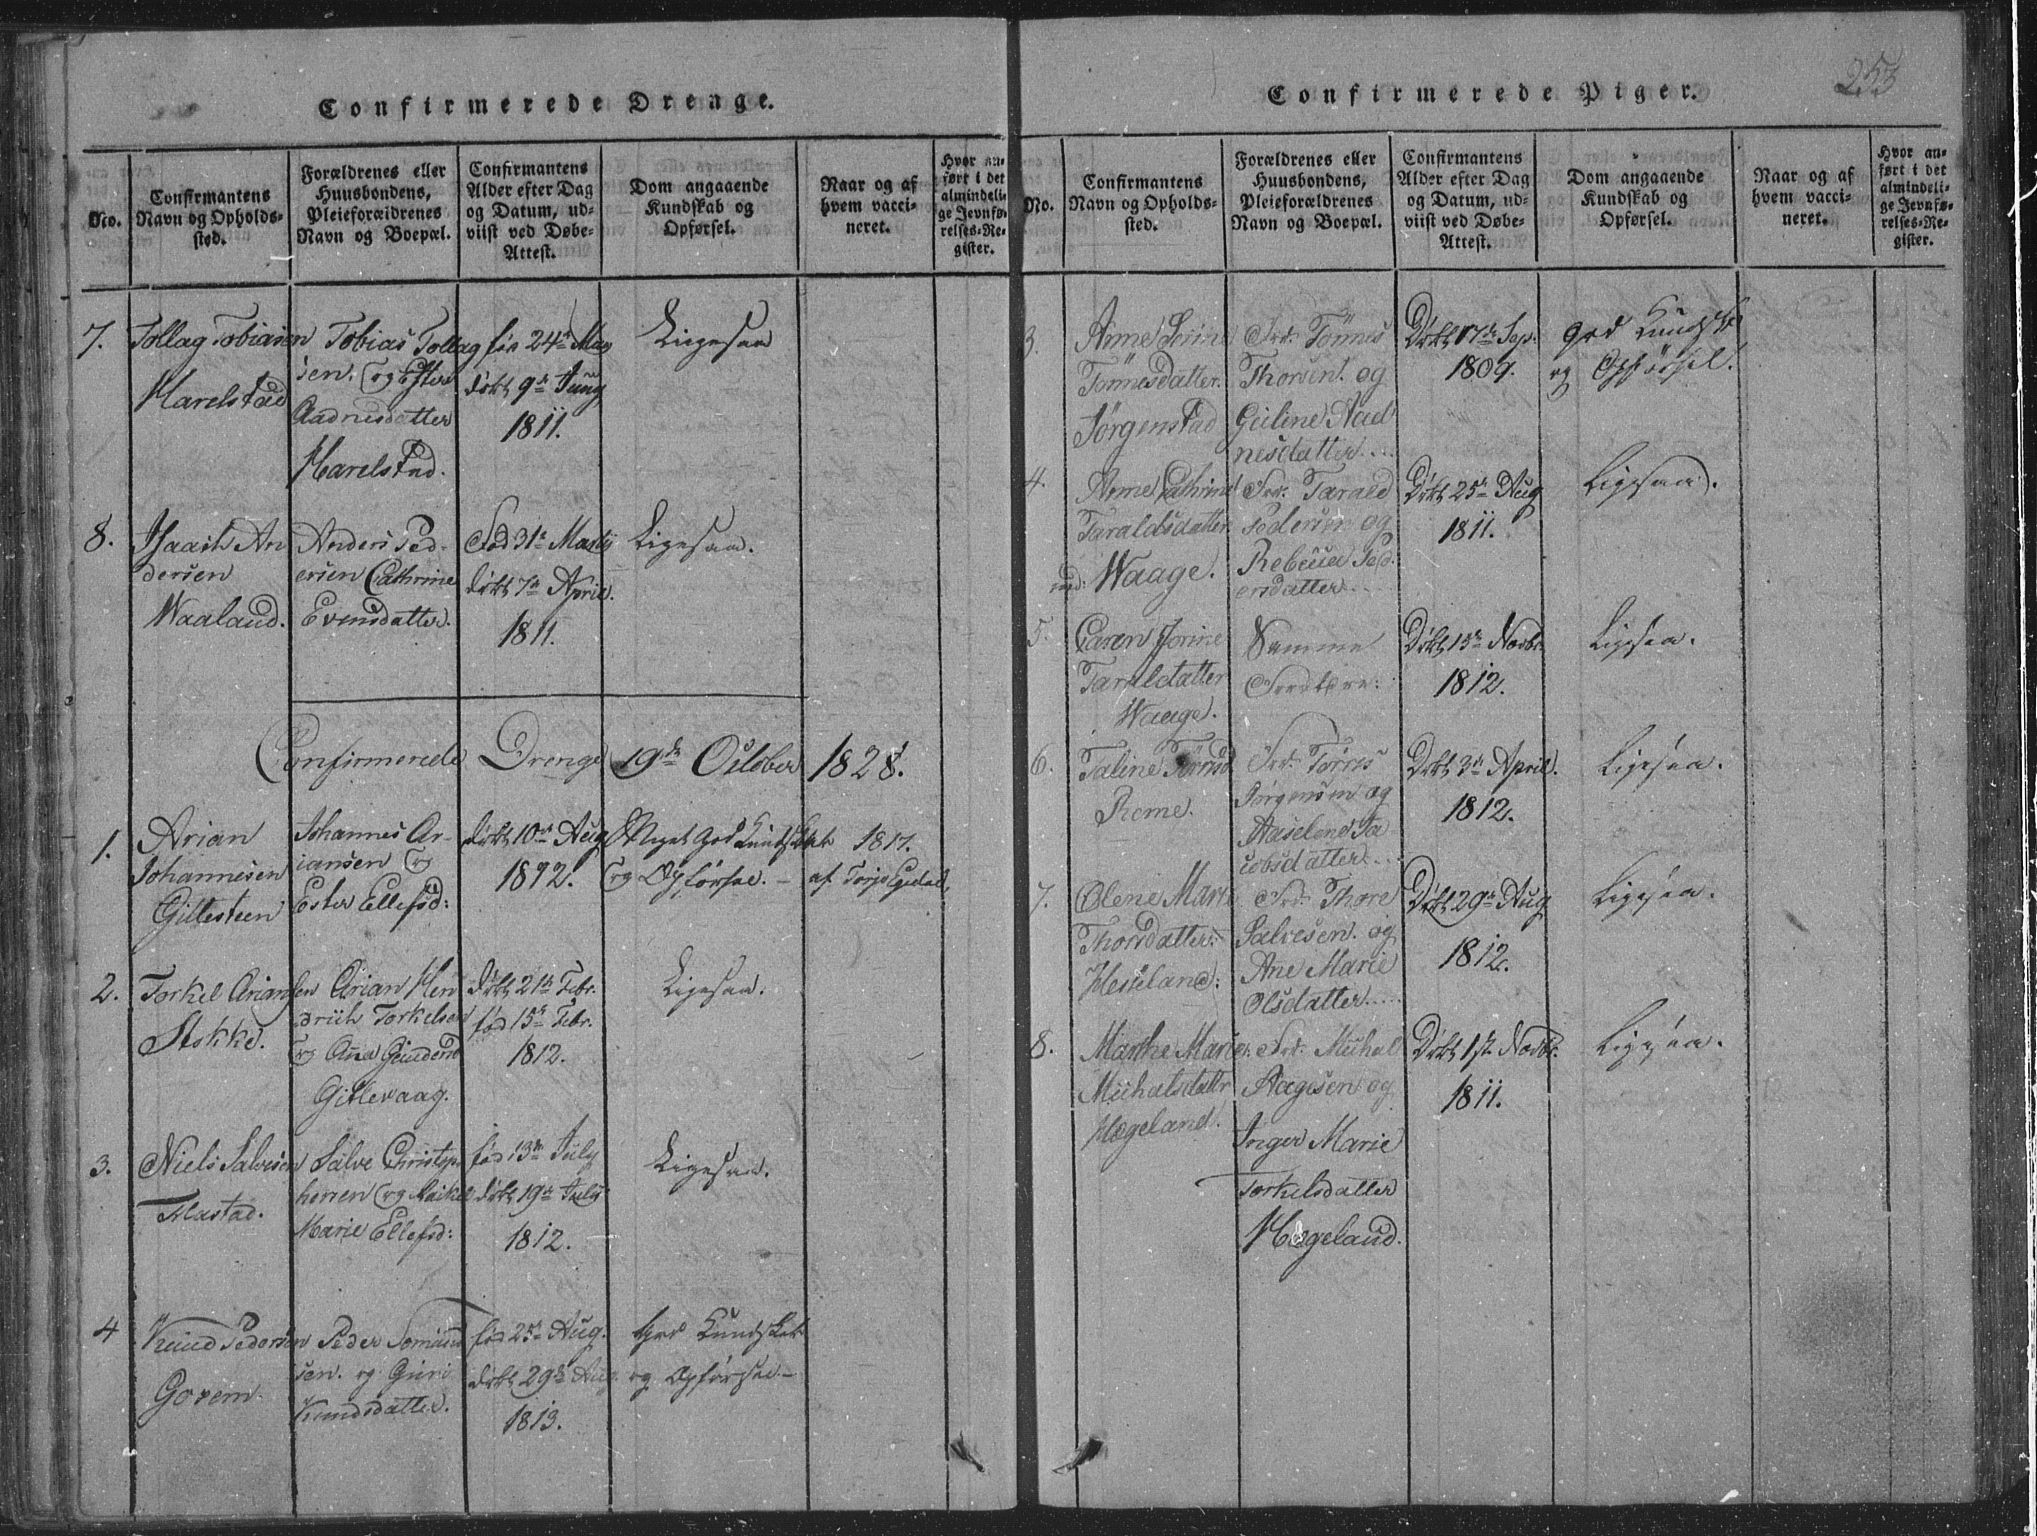 Confirmerede Drenge.
No.
Confirmantens
Navn og Opholds-
sted.
Forældrenes eller
Huusbondens,
Pleieforældrenes
Navn og Boepæl.
Confirmantens
Alder efter Dag
og Datum, ud-
viist ved Døbe-
Attest.
Dom angaaende
Kundskab og
Opførsel.
Naar og af
hvem vacci-
neret.
Hvor an-
ført i det
almindeli-
ge Jevnfø-
relses-Re-
gister.
7.
Tollag Tobiasen
Harelstad
Tobias Tollag
sen, og Ester
Aadnesdatter
Harelstad.
fød 24de May
døbt 9de Juny
1811.
Ligesaa
8.
Isaach An
dersen
Waaland.
Anders Ped-
ersen Cathrine
Evensdatter.
Fød 31te Martij
døbt 7de April.
1811.
Ligesaa.
Confirmerede Drenge 19de October 1828.
1.
Arian
Johannesen
Gillesteen
Johannes Ar-
iansen og
Ester Ellefsd:
døbt 10de Aug
1812.
Meget god Kundskab
og Opførsel. –
1817.
af Torjs Egedal,
2.
Torkel Ariansen
Stokke.
Arian Hen
drich Torkelsen
og Ana Gundersd
Gitlevaag.
døbt 21de Febr.
fød 15de Febr.
1812.
Ligesaa.
3.
Niels Salvesen
Salve Christop
herren og
Marie Ellefsd:
fød 13de July
døbt 19de July
1812.
Ligesaa.
4
Knud Pedersen
Govem.
Peder
sen. og Guri
Knudsdatter.
fød 25de Aug.
døbt 29de Aug.
1813.
god Kundskab
og Opførsel –
253
Confirmerede Piger.
No.
Confirmantens
Navn og Opholds-
sted.
Forældrenes eller
Huusbondens,
Pleieforældrenes
Navn og Boepæl.
Confirmantens
Alder efter Dag
og Datum, ud-
viist ved Døbe-
Attest.
Dom angaaende
Kundskab og
Opførsel.
Naar og af
hvem vacci-
neret.
Hvor an-
ført i det
almindeli-
ge Jevnfø-
relses-Re-
gister.
3.
Anne Serine
Tønnesdatter.
Jørgenstad
Frd: Tønnes
Thorsen. og
Guline Aad
nesdatter....
Døbt 17de Sep.
1809.
god Kundskb
og Opførsel.
4.
Anne Cathrine
Taraldsdatter
Waage.
Frd: Tarald
Pedersen og
Rebecca Ped
ersdatter...
Døbt 25de Aug
1811.
Ligesaa.
5.
Caren Jorine
Taraldsdatter
Waage.
Samme
Forældre:
Døbt 15de Novbr.
1812.
Ligesaa.
6.
Taline Tørrisd
Rome.
Frd: Tørres
Jørgensen og
Aaselene Ja
cobsdatter....
Døbt 3de April.
1812.
Ligesaa.
7.
Olene Marie
Thorsdatter:
Hesteland:
Frd: Thore
Salvesen. og
Ane Marie
Olsdatter.....
Døbt 29de Aug
1812.
Ligesaa.
8.
Marthe Marie
Michalsdattr
Hægeland.
Frd: Michal
Aagesen og
Inger Marie
Torkelsdatter
Hægeland.
Døbt 1ste Novbr.
1811.
Ligesaa.